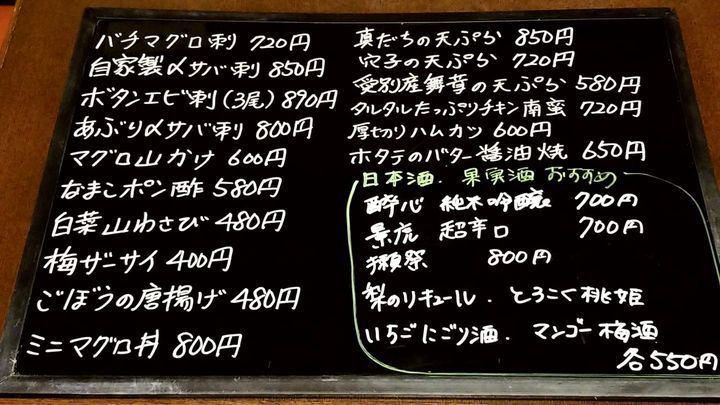 バチマグロ刺 720円
自家製〆サバ刺 850円
ボタンエビ刺(3尾) 890円
あぶり〆サバ刺 800円
マグロ山かけ 600円
なまこポン酢 580円
白菜山わさび 480円
梅ザーサイ 400円
ごぼうの唐揚げ 480円
ミニマグロ丼 800円
真だちの天ぷら 850円
穴子の天ぷら 720円
愛別産舞茸の天ぷら 580円
タルタルたっぷりチキン南蛮 720円
厚切りハムカツ 600円
ホタテのバター醤油焼 650円
日本酒.果実酒 おすすめ
酔心 純米吟醸 700円
景虎 超辛口 700円
獺祭 800円
梨のリキュール.とろこく桃姫
いちごにごり酒.マンゴー梅酒
各550円